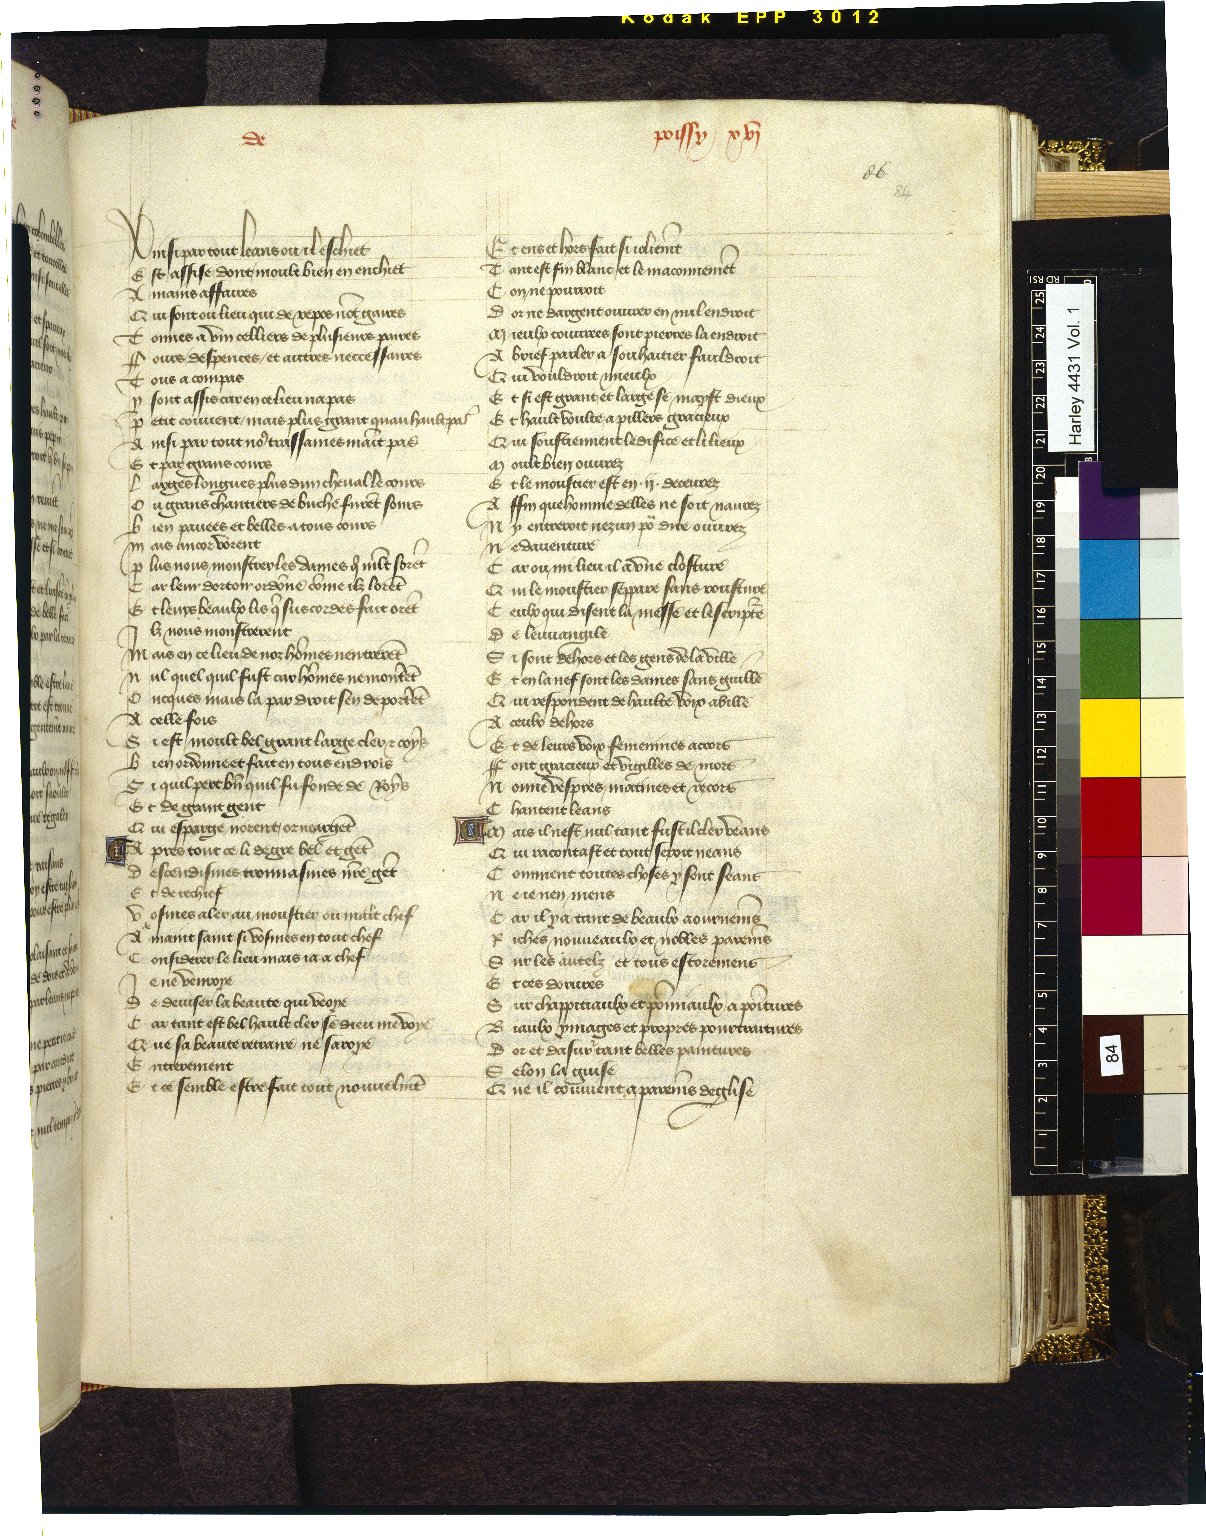 Kodak EPP 3012
de
poissy xvj
86
84
Ainsi par tout leans ou il eschiet
Est assise dont moult bien en enchiet
A mains affaires
Qui sont ou lieu qui de repos nõt gaires
Tonnes a vin celliers de plusieurs paires
Fours despences et autres neccessaires
Tous a compas
Y sont assis car en ce lieu na pas
Petit couvent mais plus grant quan hault pas
Ainsi par tout no9 trassames maĩt pas
Et par grans cours
Larges longues plus dun cheval le cours
Ou grans chantiers de buche furẽt sours
Bien pavees et belles a tous cours
Mais ancor vorent
Plus nous monstrer les dames q̃ mlt sorẽt
Car leur dortoir ordõne cõme ilz lorẽt
Et leurs beaulx lis q̃ sus cordes fait orẽt
Ilz nous monstrerent
Mais en ce lieu de noz hõmes nentrerẽt
Nul quel quil fust car hõmes ne montẽt
Oncques mais la par droit sen deportẽt
A celle fois
Si est moult bel grant large cler z coys
Bien ordonne et fait en tous endrois
Si quil pert bñ quil fu fonde de Roys
Et de grant gent
Qui esparge norent or ne argẽt
Apres tout ce li degre bel et gẽt
Descendismes trouuasmes nr̃e gẽt
Et de rechief
Vosmes aler au moustier ou maĩt chef
A maint saint si vosmes en tout chef
Considerer le lieu mais ia a chef
Je ne venroye
De deviser la beaute qui veoye
Car tant est bel hault cler se dieu me voye
Que sa beaute retraire ne saroye
Entierement
Et ce semble estre fait tout nouvelmẽt
Et ens et hors fait si ioliemẽt
Tant est fin blanc et le maconnemẽt
Con ne pourroit
Dor ne dargent ouvrer en nul endroit
Mieulx couvrees sont pierres la endroit
A brief parler a souhaitier fauldroit
Qui vouldroit mieulx
Et si est grant et large se mayst dieux
Et hault voulte a pillers gracieux
Qui soustiennent ledifice et li lieux
Moult bien ouvrez
Et le moustier est en .ij. decevrez
Affin que homme delles ne soit navrez
Ny entreroit nezun po9 dire ouvrez
Ne daventure
Car ou milieu il a vne closture
Qui le moustier separe sans roupsture
Ceulx qui disent la messe et lescriptr̃e
De leuuangile
Si sont dehors et les gens de la ville
Et en la nef sont les dames sans guille
Qui respondent de haulte voix abille
A ceulx dehors
Et de leurs voix femenines accors
Font gracieux et vigilles de mors
Nonne vespres matines et recors
Chantent leans
Mais il nest nul tant fust il cler veans
Qui racontast et tout seroit neans
Comment toutes choses y sont seans
Ne ie nen mens
Car il y a tant de beaulx aournemẽs
Riches nouveaulx et nobles paremẽs
Sur les autelz et tous estoremens
Et ces dorures
Sur chappiteaulx et põmiaulx a pointures
Biaulx ymages et propres pourtraitures
Dor et dasur tant belles paintures
Selon la guise
Que il couvient a paremẽs deglise
Harley 4431 Vol. 1
84
25
24
23
22
21
20
19
18
17
16
15
14
13
12
11
10
9
8
7
5
4
3
2
1